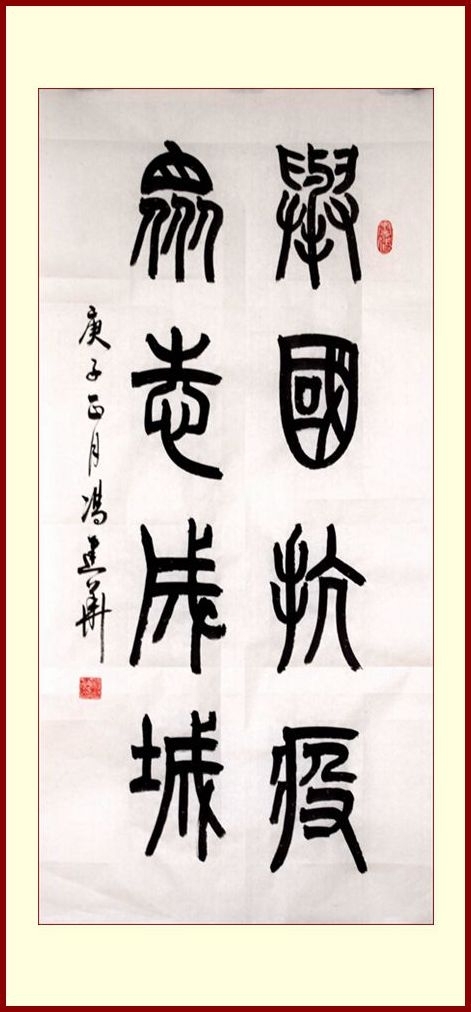 舉國抗疫
眾志成城
庚子正月馮建華